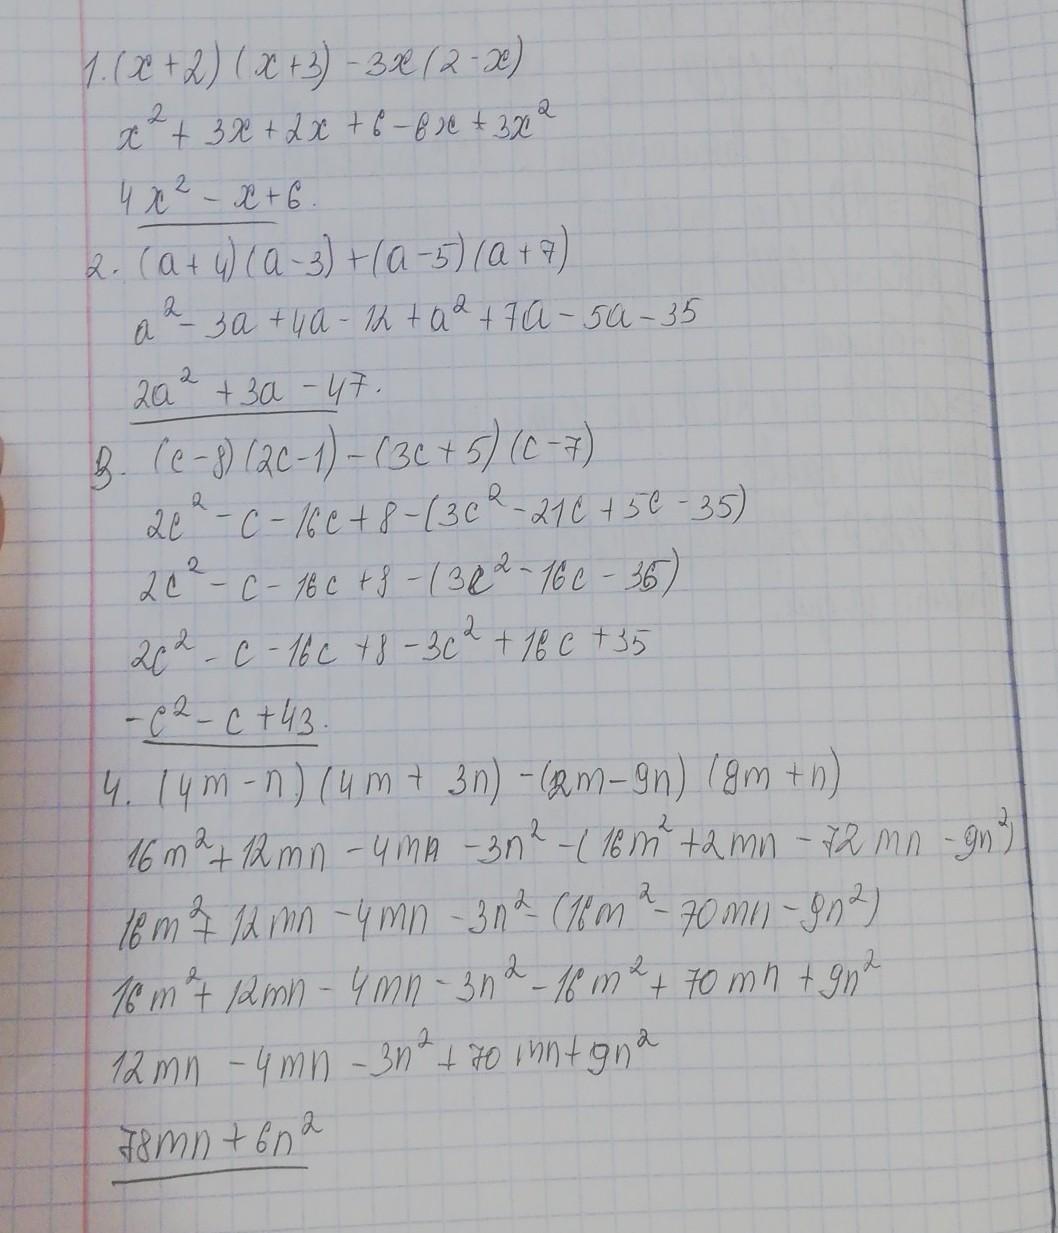 1. (x+2) (x+3) - 3x (2-x)
x² + 3x + 2x + 6 - 6x + 3x²
4x² - x + 6.
2. (a+4) (a-3) + (a-5) (a+7)
a² - 3a + 4a - 12 + a² + 7a - 5a - 35
2a² + 3a - 47.
3. (c-8) (2c-1) - (3c+5) (c-7)
2c² - c - 16c + 8 - (3c² - 21c + 5c - 35)
2c² - c - 16c + 8 - (3c² - 16c - 35)
2c² - c - 16c + 8 - 3c² + 16c + 35
-c² - c + 43.
4. (4m - n) (4m + 3n) - (2m - 9n) (8m + n)
16m² + 12mn - 4mn - 3n² - (16m² + 2mn - 72mn - 9n²)
16m² + 12mn - 4mn - 3n² - (16m² - 70mn - 9n²)
16m² + 12mn - 4mn - 3n² - 16m² + 70mn + 9n²
12mn - 4mn - 3n² + 70mn + 9n²
78mn + 6n²